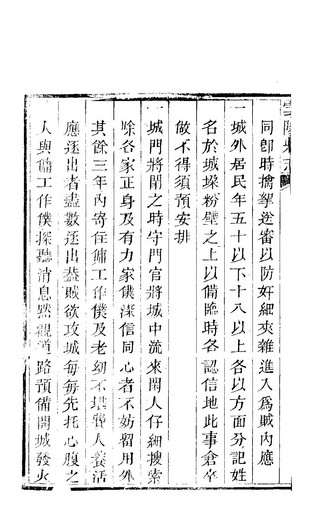 同卽時擒拏送審以防奸細夾雜進入爲賊內應
一城外居民年五十以下十八以上各以方面分記姓
名於城垜粉壁之上以備臨時各認信地此事倉卒
做不得須預安排
一城門將閉之時守門官將城中流來閑人仔細搜索
除各家正身及有力家僕深信同心者不妨留用外
其餘三年內寄住傭工作僕及老幼不堪費人養活
應逐出者盡數逐出蓋賊欲攻城每每先托心腹之
人與傭工作僕探聽消息熟觀道路預備開城發火